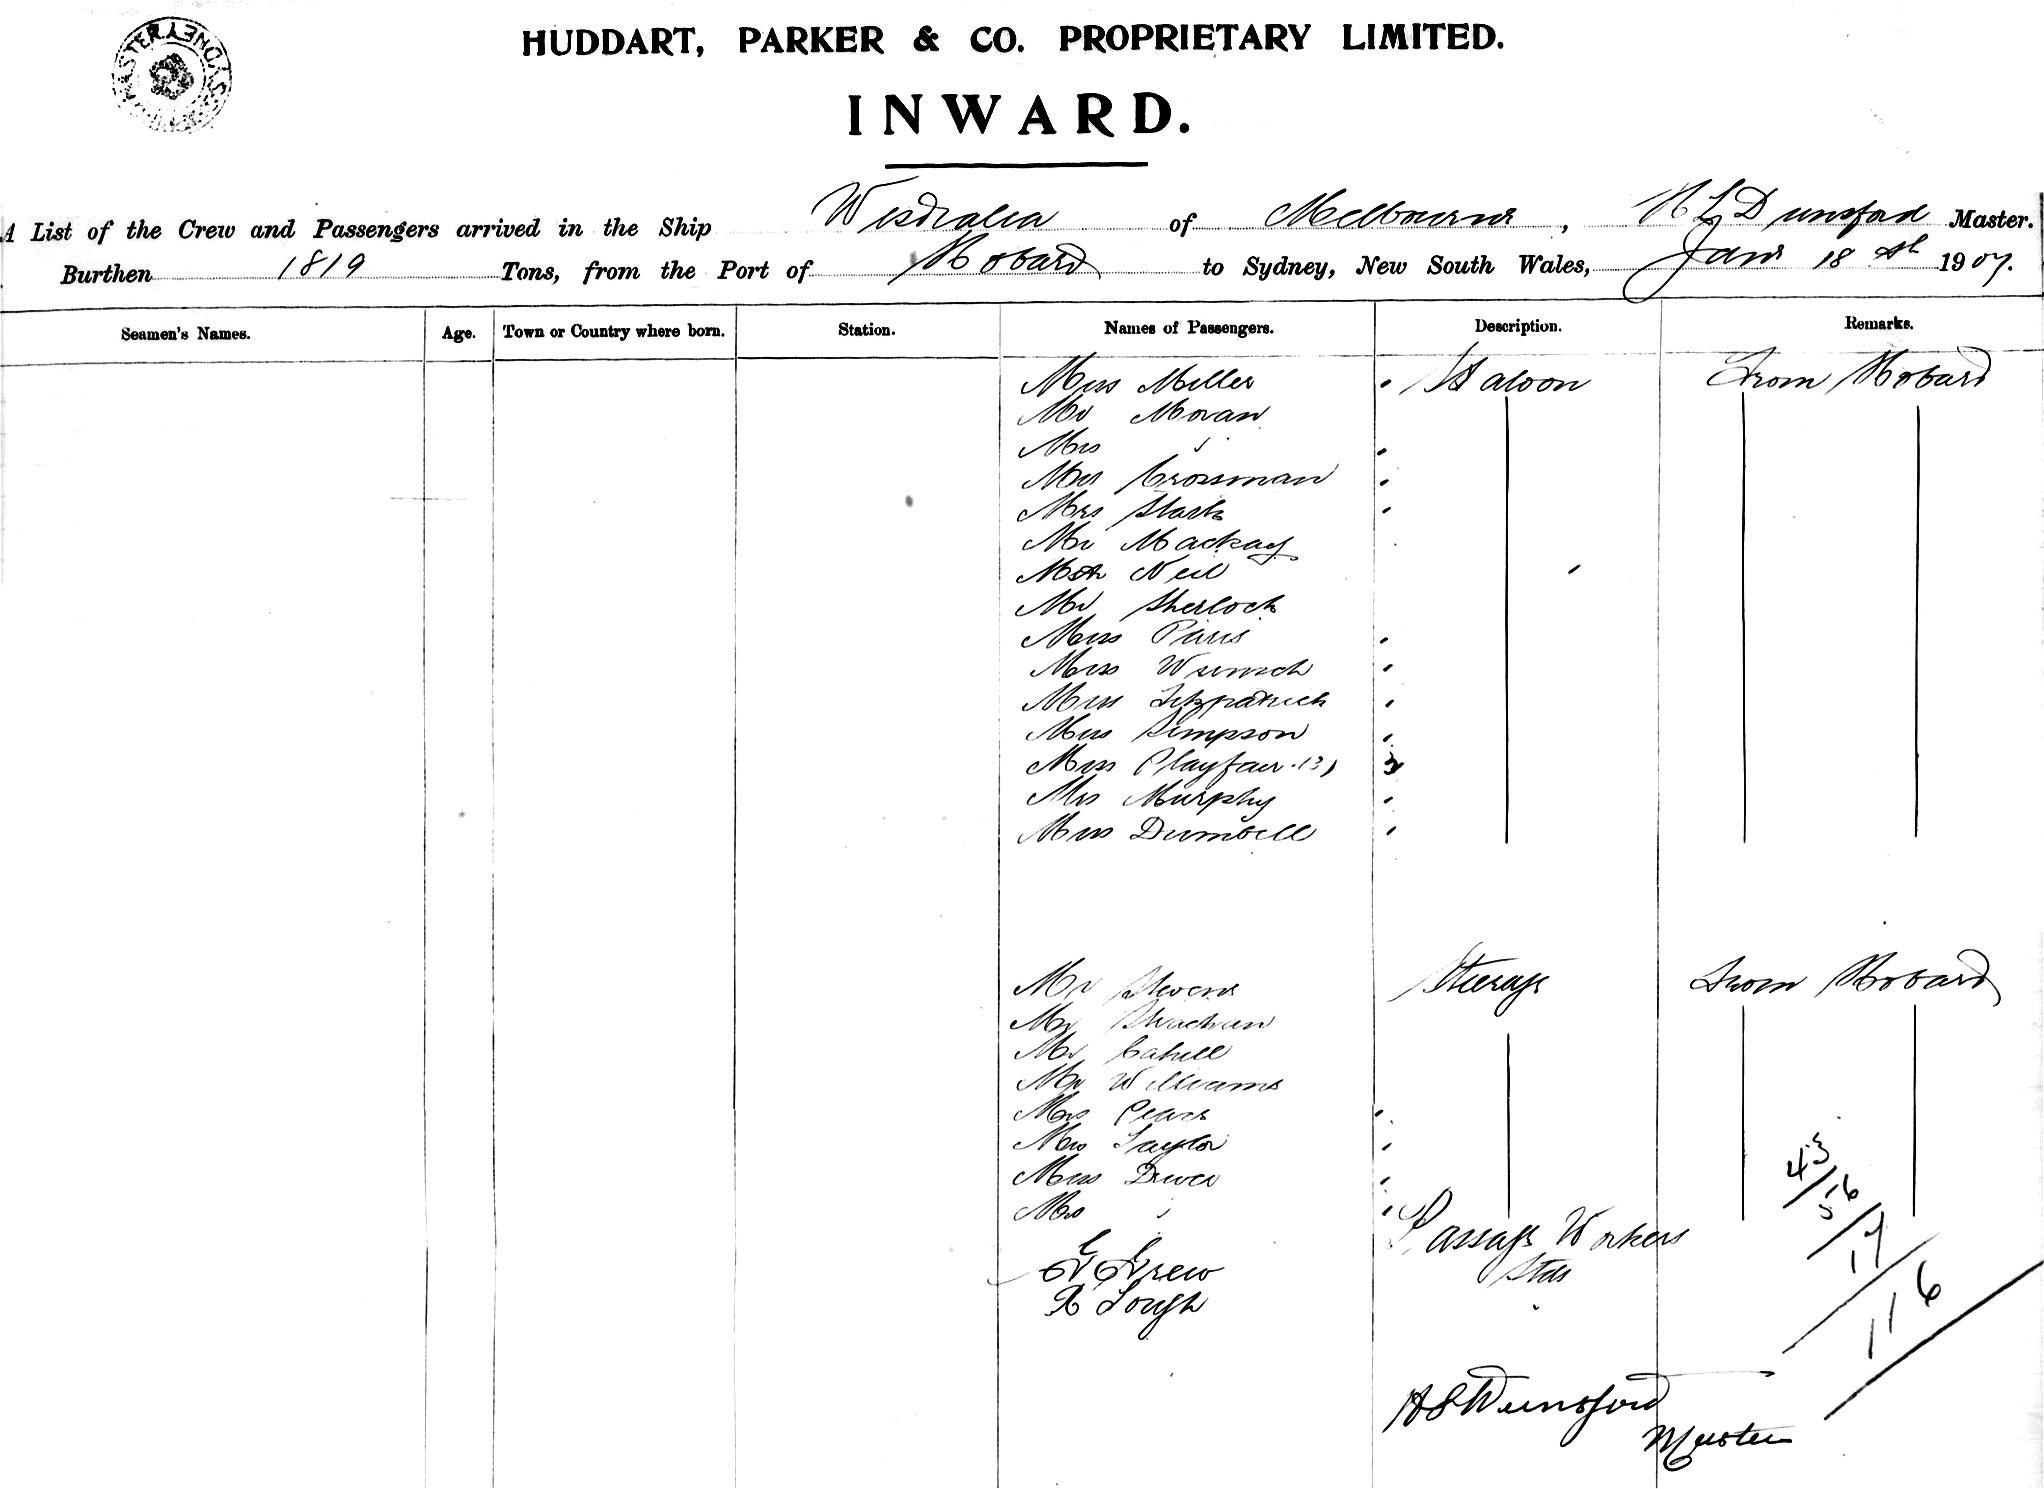 SYDNEY
HUDDART, PARKER & CO. PROPRIETARY LIMITED.
INWARD.
A List of the Crew and Passengers arrived in the Ship Westralia of Melbourne, H L Dunsford Master.
Burthen 1819 Tons, from the Port of Hobart to Sydney, New South Wales, Jany 18th 1907.
Seamen's Names. Age. Town or Country where born. Station. Names of Passengers. Description. Remarks.
Miss Miller Saloon From Hobart
Mr Moran
Mrs "
Mrs Crossman
Mrs Stark
Mr Mackay
Mstr Neil
Mr Sherlock
Miss Paris
Miss Wunsch
Miss Fitzpatrick
Miss Simpson
Miss Playfair (3) 3
Mrs Murphy
Miss Dumbell
Mr Stevens Steerage From Hobart
Mr Strachan
Mr Cahill
Mr Williams
Mrs Pearce
Mrs Taylor
Miss
Mrs "
Passage Workers
Grew Stds
R Lough "
43/16
5/17
116
H L Dunsford
Master